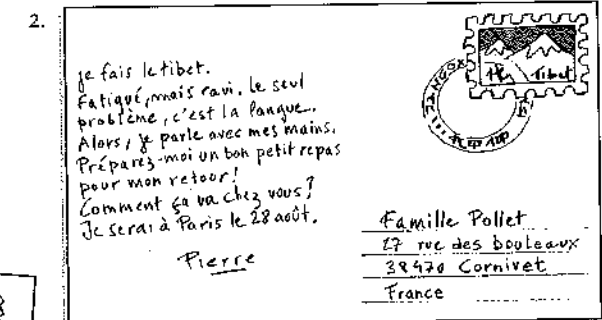 2.
je fais le tibet.
Fatigué, mais ravi. Le seul
problème, c'est la langue.
Alors, je parle avec mes mains.
Préparez-moi un bon petit repas
pour mon retour!
Comment ça va chez vous?
Je serai à Paris le 28 août.
Pierre
Tibet
Famille Pollet
27 rue des bouleaux
38470 Cornivet
France